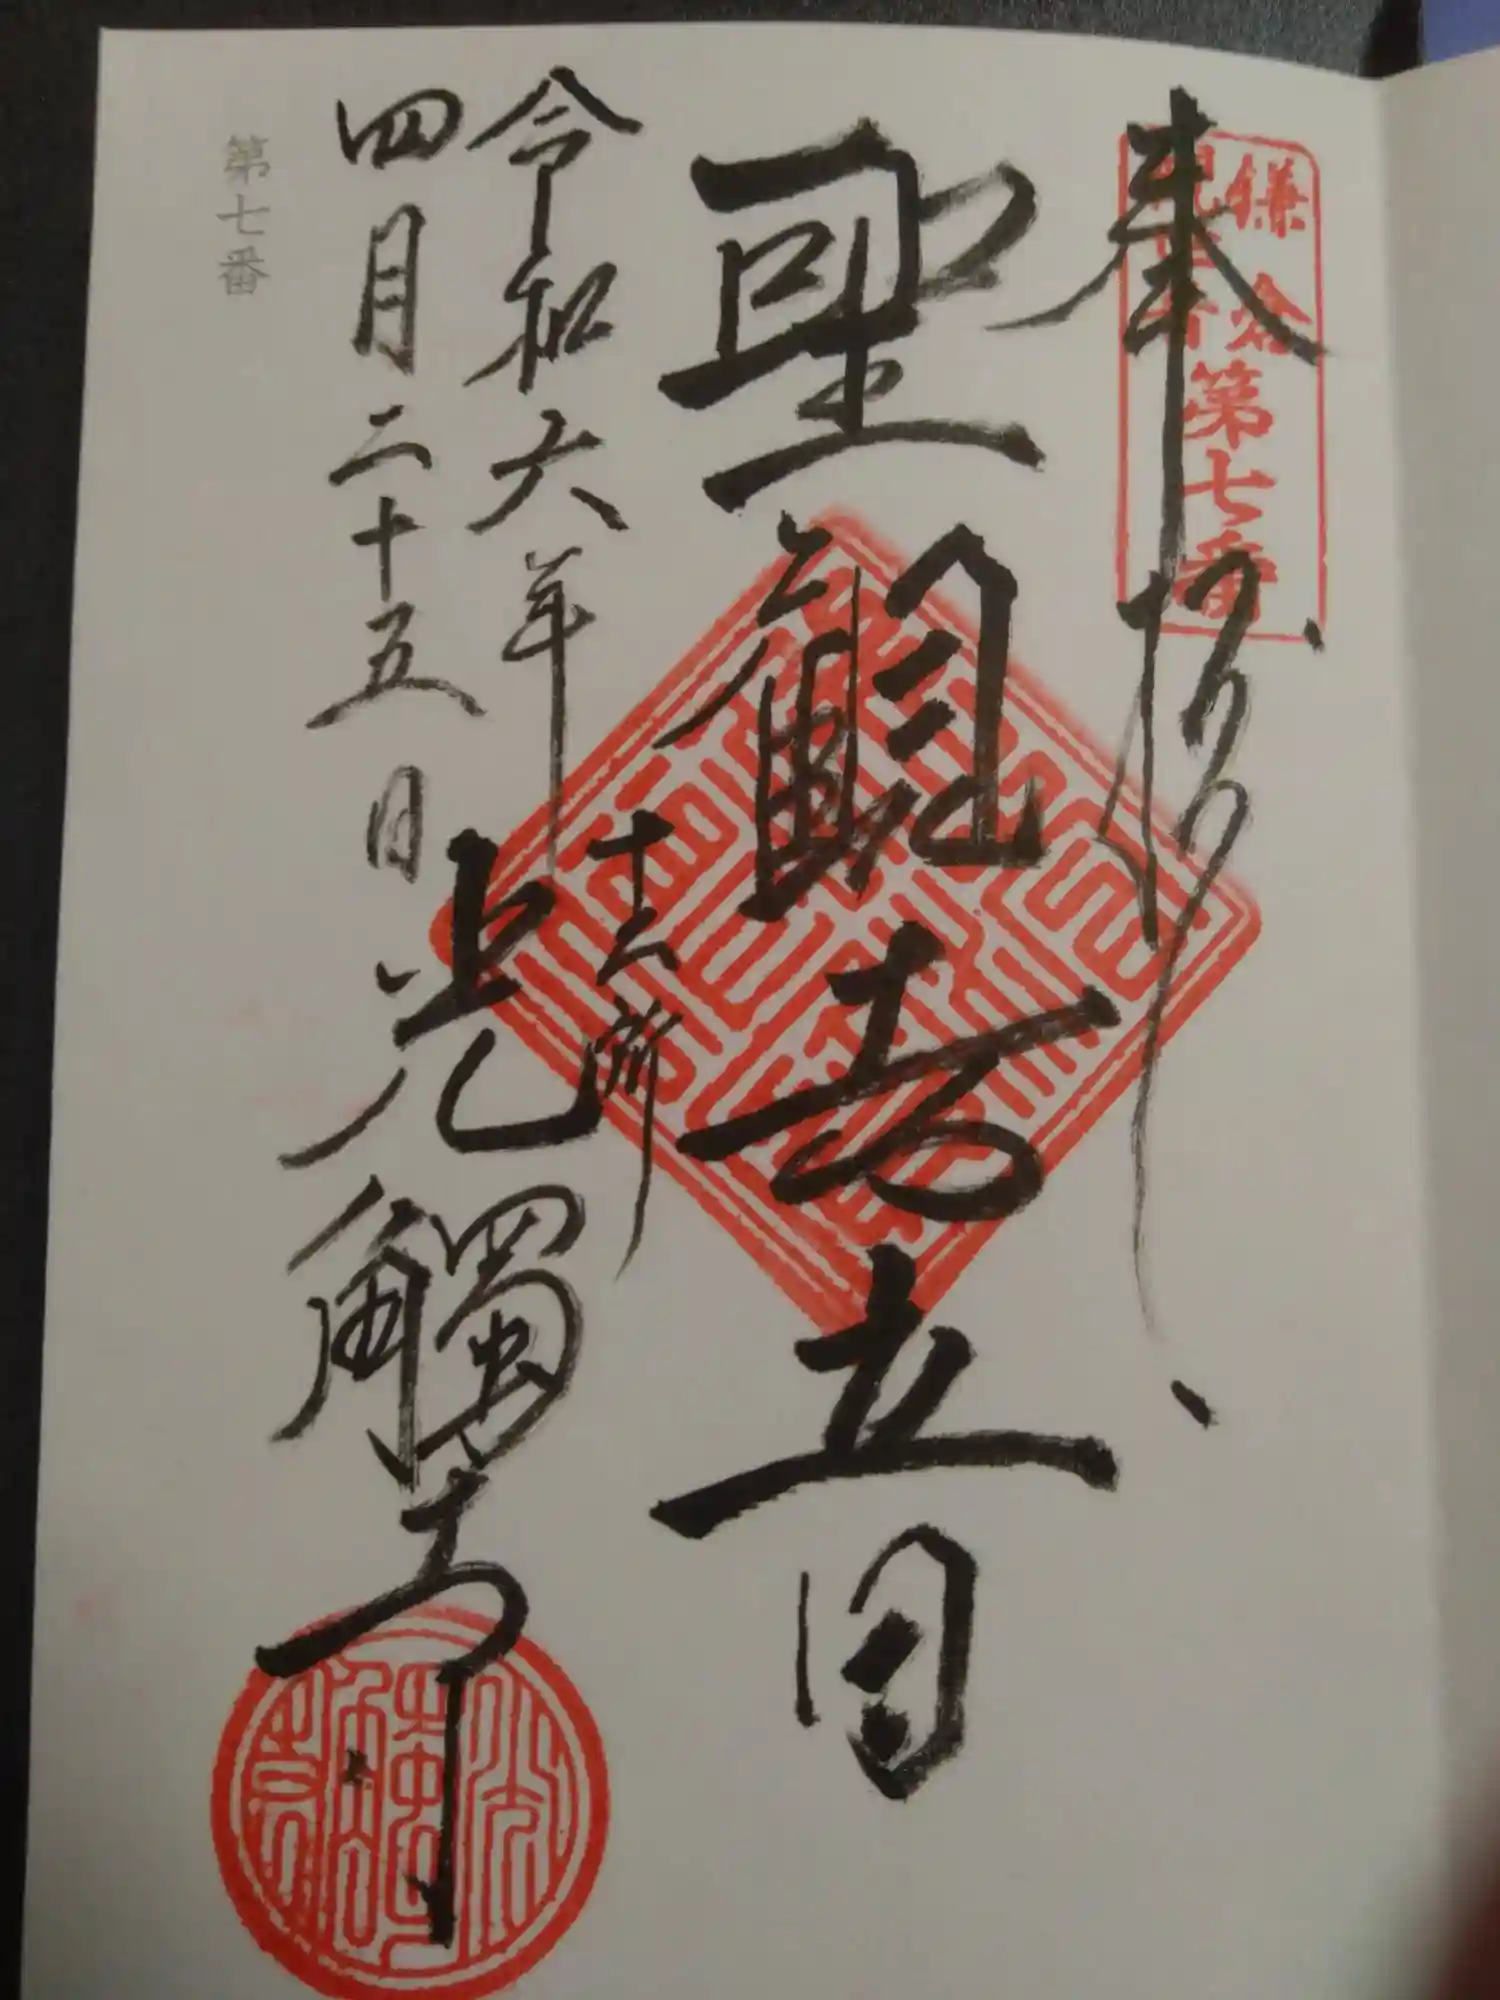 奉拝
鎌倉
観世音
第七番
聖観世音
令和六年
四月二十五日
十二所
光觸寺
第七番